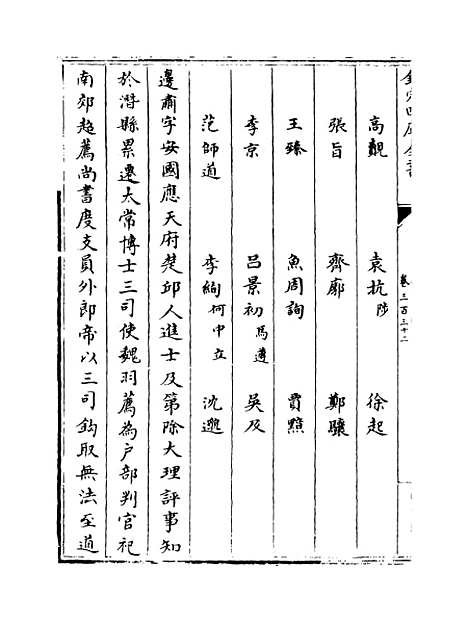 欽定四庫全書
卷三百三十二
高覿 袁抗陟 徐起
張旨 齊廓 鄭驤
王臻 魚周詢 賈黯
李京 呂景初馬遵 吳及
范師道 李絢何中立 沈邈
邊肅字安國應天府楚邱人進士及第除大理評事知
於潛縣累遷太常博士三司使魏羽薦為戶部判官祀
南郊超薦尚書度支員外郎帝以三司鈎取無法至道